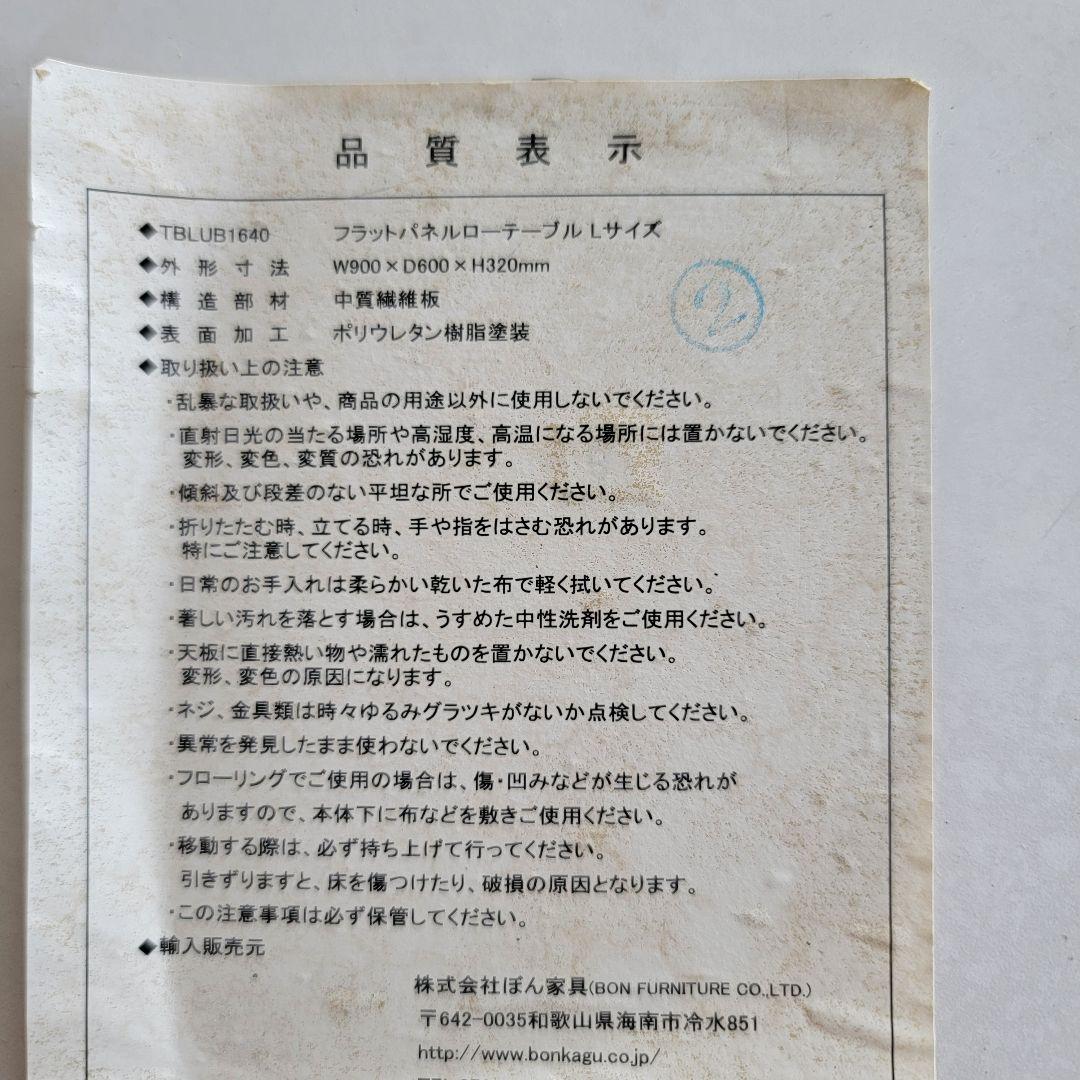 品質表示
◆TBLUB1640 フラットパネルローテーブル Lサイズ
◆外形寸法 W900×D600×H320mm
◆構造部材 中質繊維板
◆表面加工 ポリウレタン樹脂塗装
◆取り扱い上の注意
・乱暴な取扱いや、商品の用途以外に使用しないでください。
・直射日光の当たる場所や高湿度、高温になる場所には置かないでください。
変形、変色、変質の恐れがあります。
・傾斜及び段差のない平坦な所でご使用ください。
・折りたたむ時、立てる時、手や指をはさむ恐れがあります。
特にご注意してください。
・日常のお手入れは柔らかい乾いた布で軽く拭いてください。
・著しい汚れを落とす場合は、うすめた中性洗剤をご使用ください。
・天板に直接熱い物や濡れたものを置かないでください。
変形、変色の原因になります。
・ネジ、金具類は時々ゆるみグラツキがないか点検してください。
・異常を発見したまま使わないでください。
・フローリングでご使用の場合は、傷・凹みなどが生じる恐れが
ありますので、本体下に布などを敷きご使用ください。
・移動する際は、必ず持ち上げて行ってください。
引きずりますと、床を傷つけたり、破損の原因となります。
・この注意事項は必ず保管してください。
◆輸入販売元
株式会社ぼん家具(BON FURNITURE CO.,LTD.)
〒642-0035和歌山県海南市冷水851
http://www.bonkagu.co.jp/